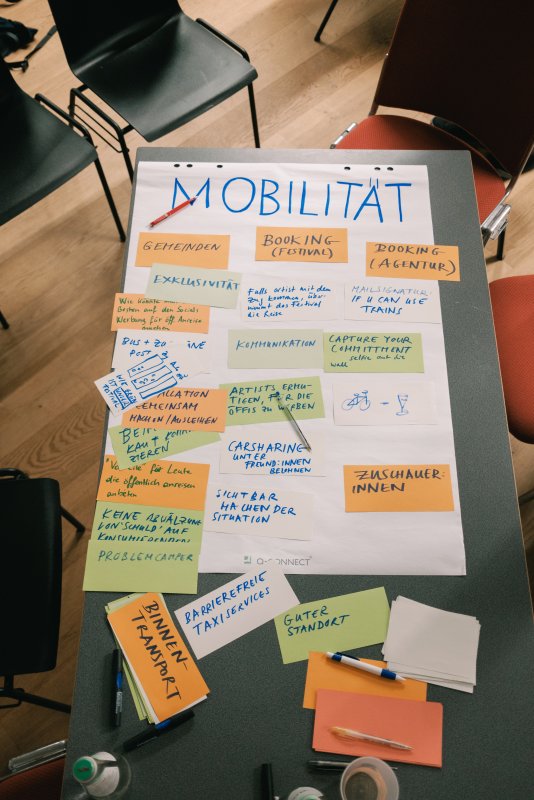 MOBILITÄT
GEMEINDEN
BOOKING
(FESTIVAL)
BOOKING
(AGENTUR)
EXKLUSIVITÄT
Falls artist mit dem
Zug kommen, über-
nimmt das Festival
die Reise
MAILSIGNATUR:
IF U CAN USE
TRAINS
Wie könnte man
Besten auf den Socials
Werbung für öff. Anreise
machen
BUS + ZU
POST
KOMMUNIKATION
CAPTURE YOUR
COMMITTMENT
selfie auf die
wall
WIE
IST
FESTIVAL
ARTISTS ERMU-
TIGEN, FÜR DIE
ÖFFIS ZU WERBEN
GEMEINSAM
MACHEN/AUSLEIHEN
KAUT
ZIEREN
CARSHARING
UNTER
FREUND:INNEN
BELOHNEN
für Leute
die öffentlich anreisen
anbieten
ZUSCHAUER:
INNEN
SICHTBAR
MACHEN DER
SITUATION
KEINE ABWÄLZUNG
VON "SCHULD" AUF
KONSUMIERENDEN
PROBLEM CAMPER
Q-CONNECT
BARRIEREFREIE
TAXISERVICES
BINNEN-
TRANSPORT
GUTER
STANDORT